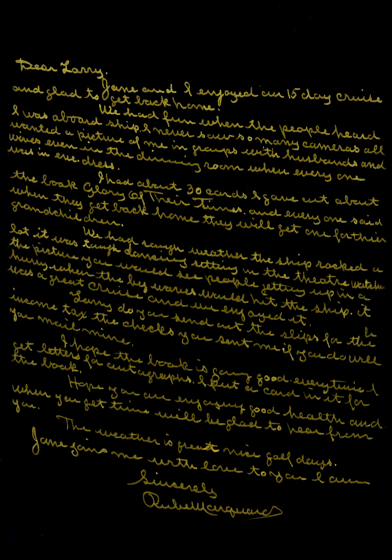 Dear Larry,
Jane and I enjoyed our 15 day cruise
and glad to get back home.
We had fun when the people heard
I was aboard ship. I never saw so many cameras all
wanted a picture of me in groups with husbands and
wives even in the dinning room when every one
was in eve. dress.
I had about 30 cards I gave out about
the book Glory Of Their Times. and every one said
when they get back home they will get one for their
grandchildren.
We had rough weather the ship rocked a
lot it was tough dancing sitting in the theatre watching
the picture you would see people getting up in a
hurry when the big waves would hit the ship. it
was a great cruise and we enjoyed it.
Larry do you send out the slips for the
income tax the checks you sent me if you do will
you mail mine.
I hope the book is going good everytime I
get letters for autographs. I put a card in it for
the book.
Hope you are enjoying good health and
when you get time will be glad to hear from
you.
The weather is great nice golf days.
Jane joins me with love to you I am
Sincerely
Rube Marquard